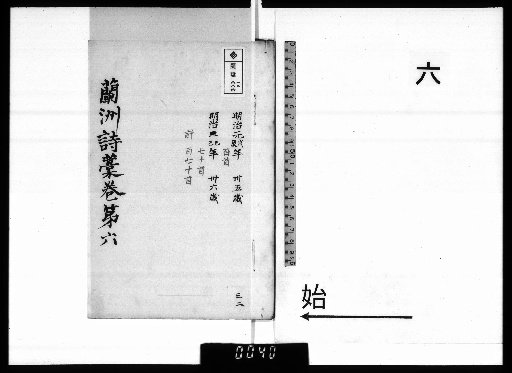 六
始
明治元戊辰年 卅五歳
百首
明治二己巳年 卅六歳
七十首
計 百七十首
蘭洲詩藁巻第六
0040